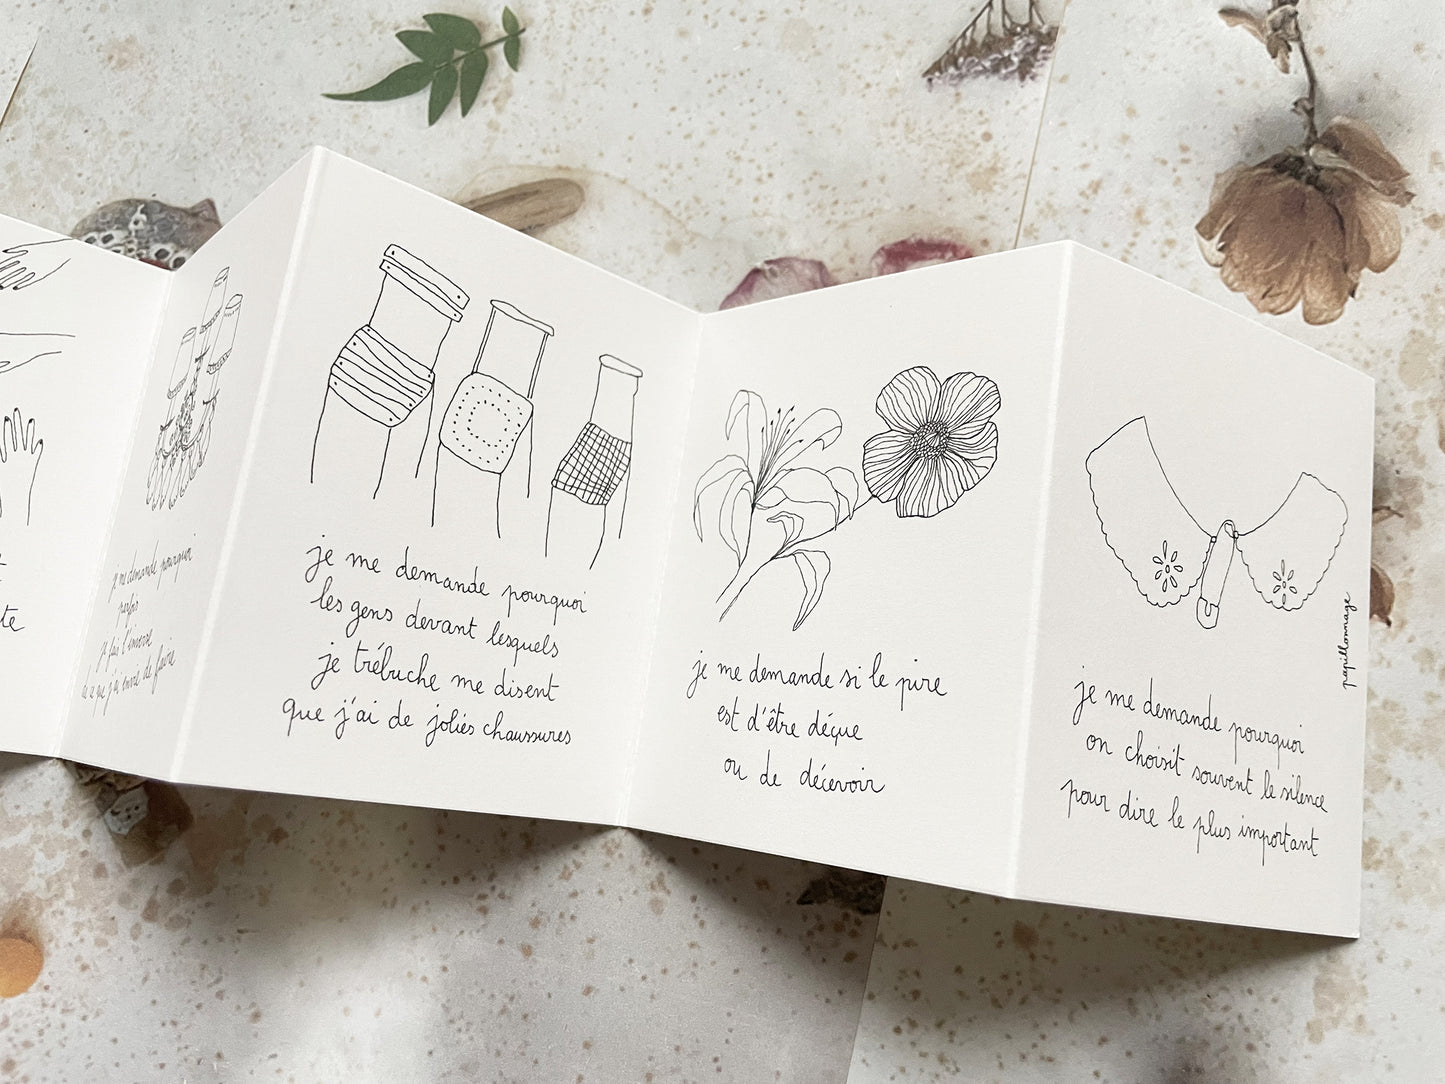 te
je me demande pourquoi
parfois
je fais l'inverse
de ce que j'ai envie de faire
je me demande pourquoi
les gens devant lesquels
je trébuche me disent
que j'ai de jolies chaussures
je me demande si le pire
est d'être déçue
ou de décevoir
je me demande pourquoi
on choisit souvent le silence
pour dire le plus important
papillonnage